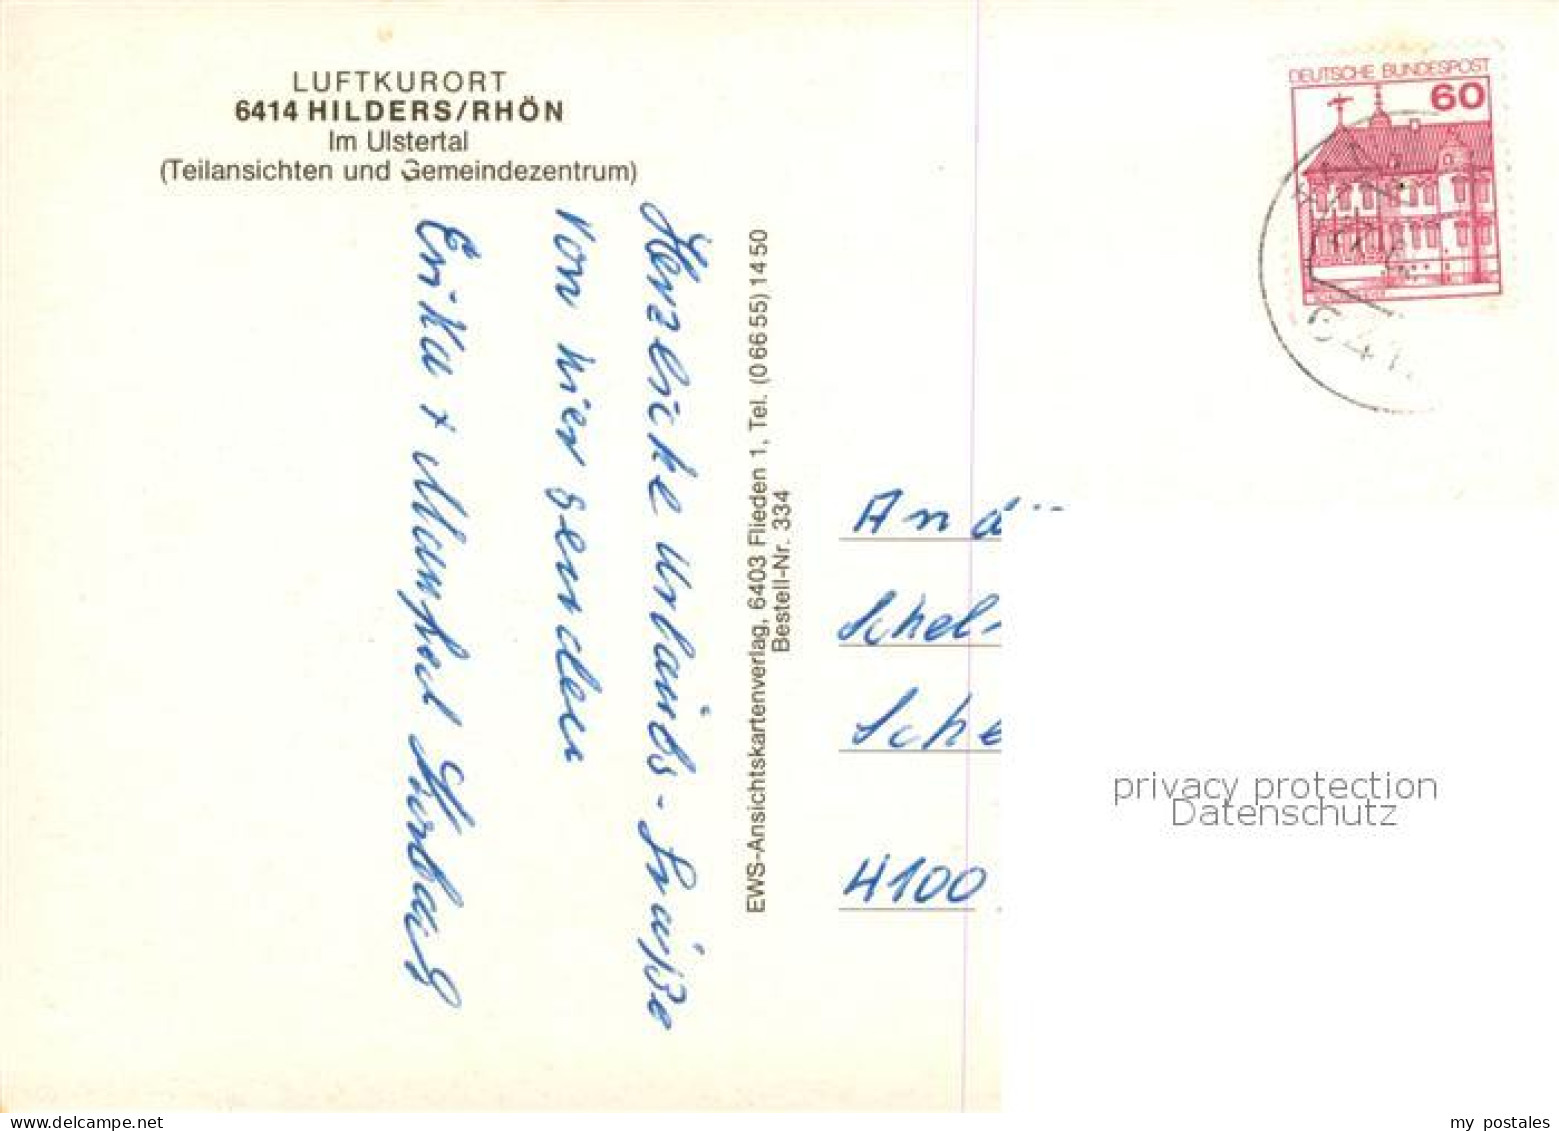 LUFTKURORT
6414 HILDERS/RHÖN
Im Ulstertal
(Teilansichten und Gemeindezentrum)
Herzliche Urlaubs-Grüße
von hier senden
Erika + Manfred
EWS-Ansichtskartenverlag, 6403 Flieden 1, Tel. (0 66 55) 14 50
Bestell-Nr. 334
DEUTSCHE BUNDESPOST
60
641
And
Schel
Sche
4100
privacy protection
Datenschutz
my postales